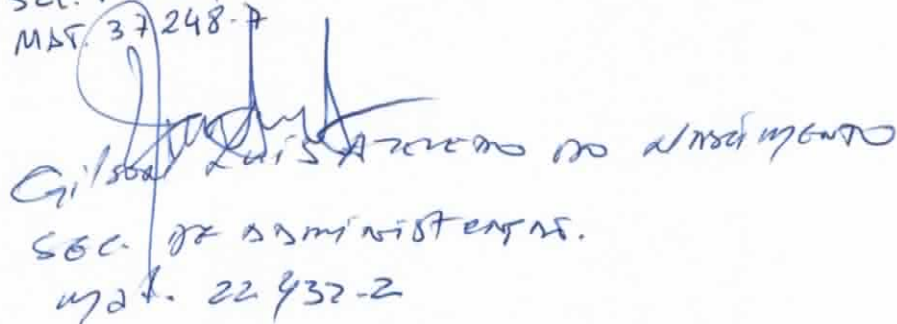 MAT. 37248-7
Gilson Luis Azevedo do Nascimento
SEC. DE ADMINISTRAÇÃO.
mat. 22432-2